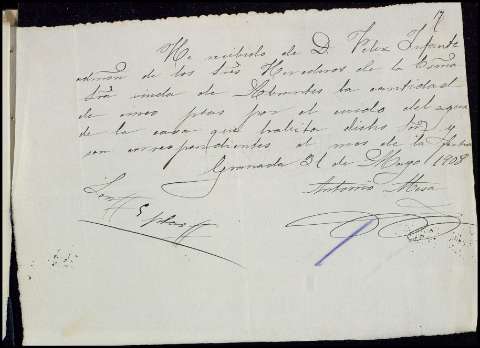 17
He recibido de D. Felix Infante
admon de los Sres Herederos de la Exma
Sra viuda de Abrantes la cantidad
de cinco ptas por el cuido del agua
de la casa que habita dicho Sor y
son correspondientes al mes de la fecha
Granada 31 de Mayo 1908
Antonio Mesa
Son 5 ptas